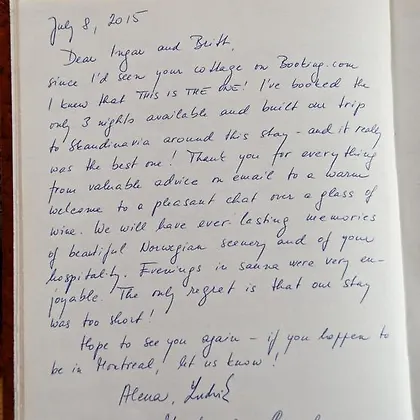 July 8, 2015
Dear Ingar and Britt,
since I'd seen your cottage on Booking.com
I knew that THIS IS THE ONE! I've booked the
only 3 nights available and built our trip
to Skandinavia around this stay - and it really
was the best one! Thank you for everything
from valuable advice on email to a warm
welcome to a pleasant chat over a glass of
wine. We will have ever lasting memories
of beautiful Norwegian scenery and of your
hospitality. Evenings in sauna were very en-
joyable. The only regret is that our stay
was too short!
Hope to see you again - if you happen to
be in Montreal, let us know!
Alena, Ludvik